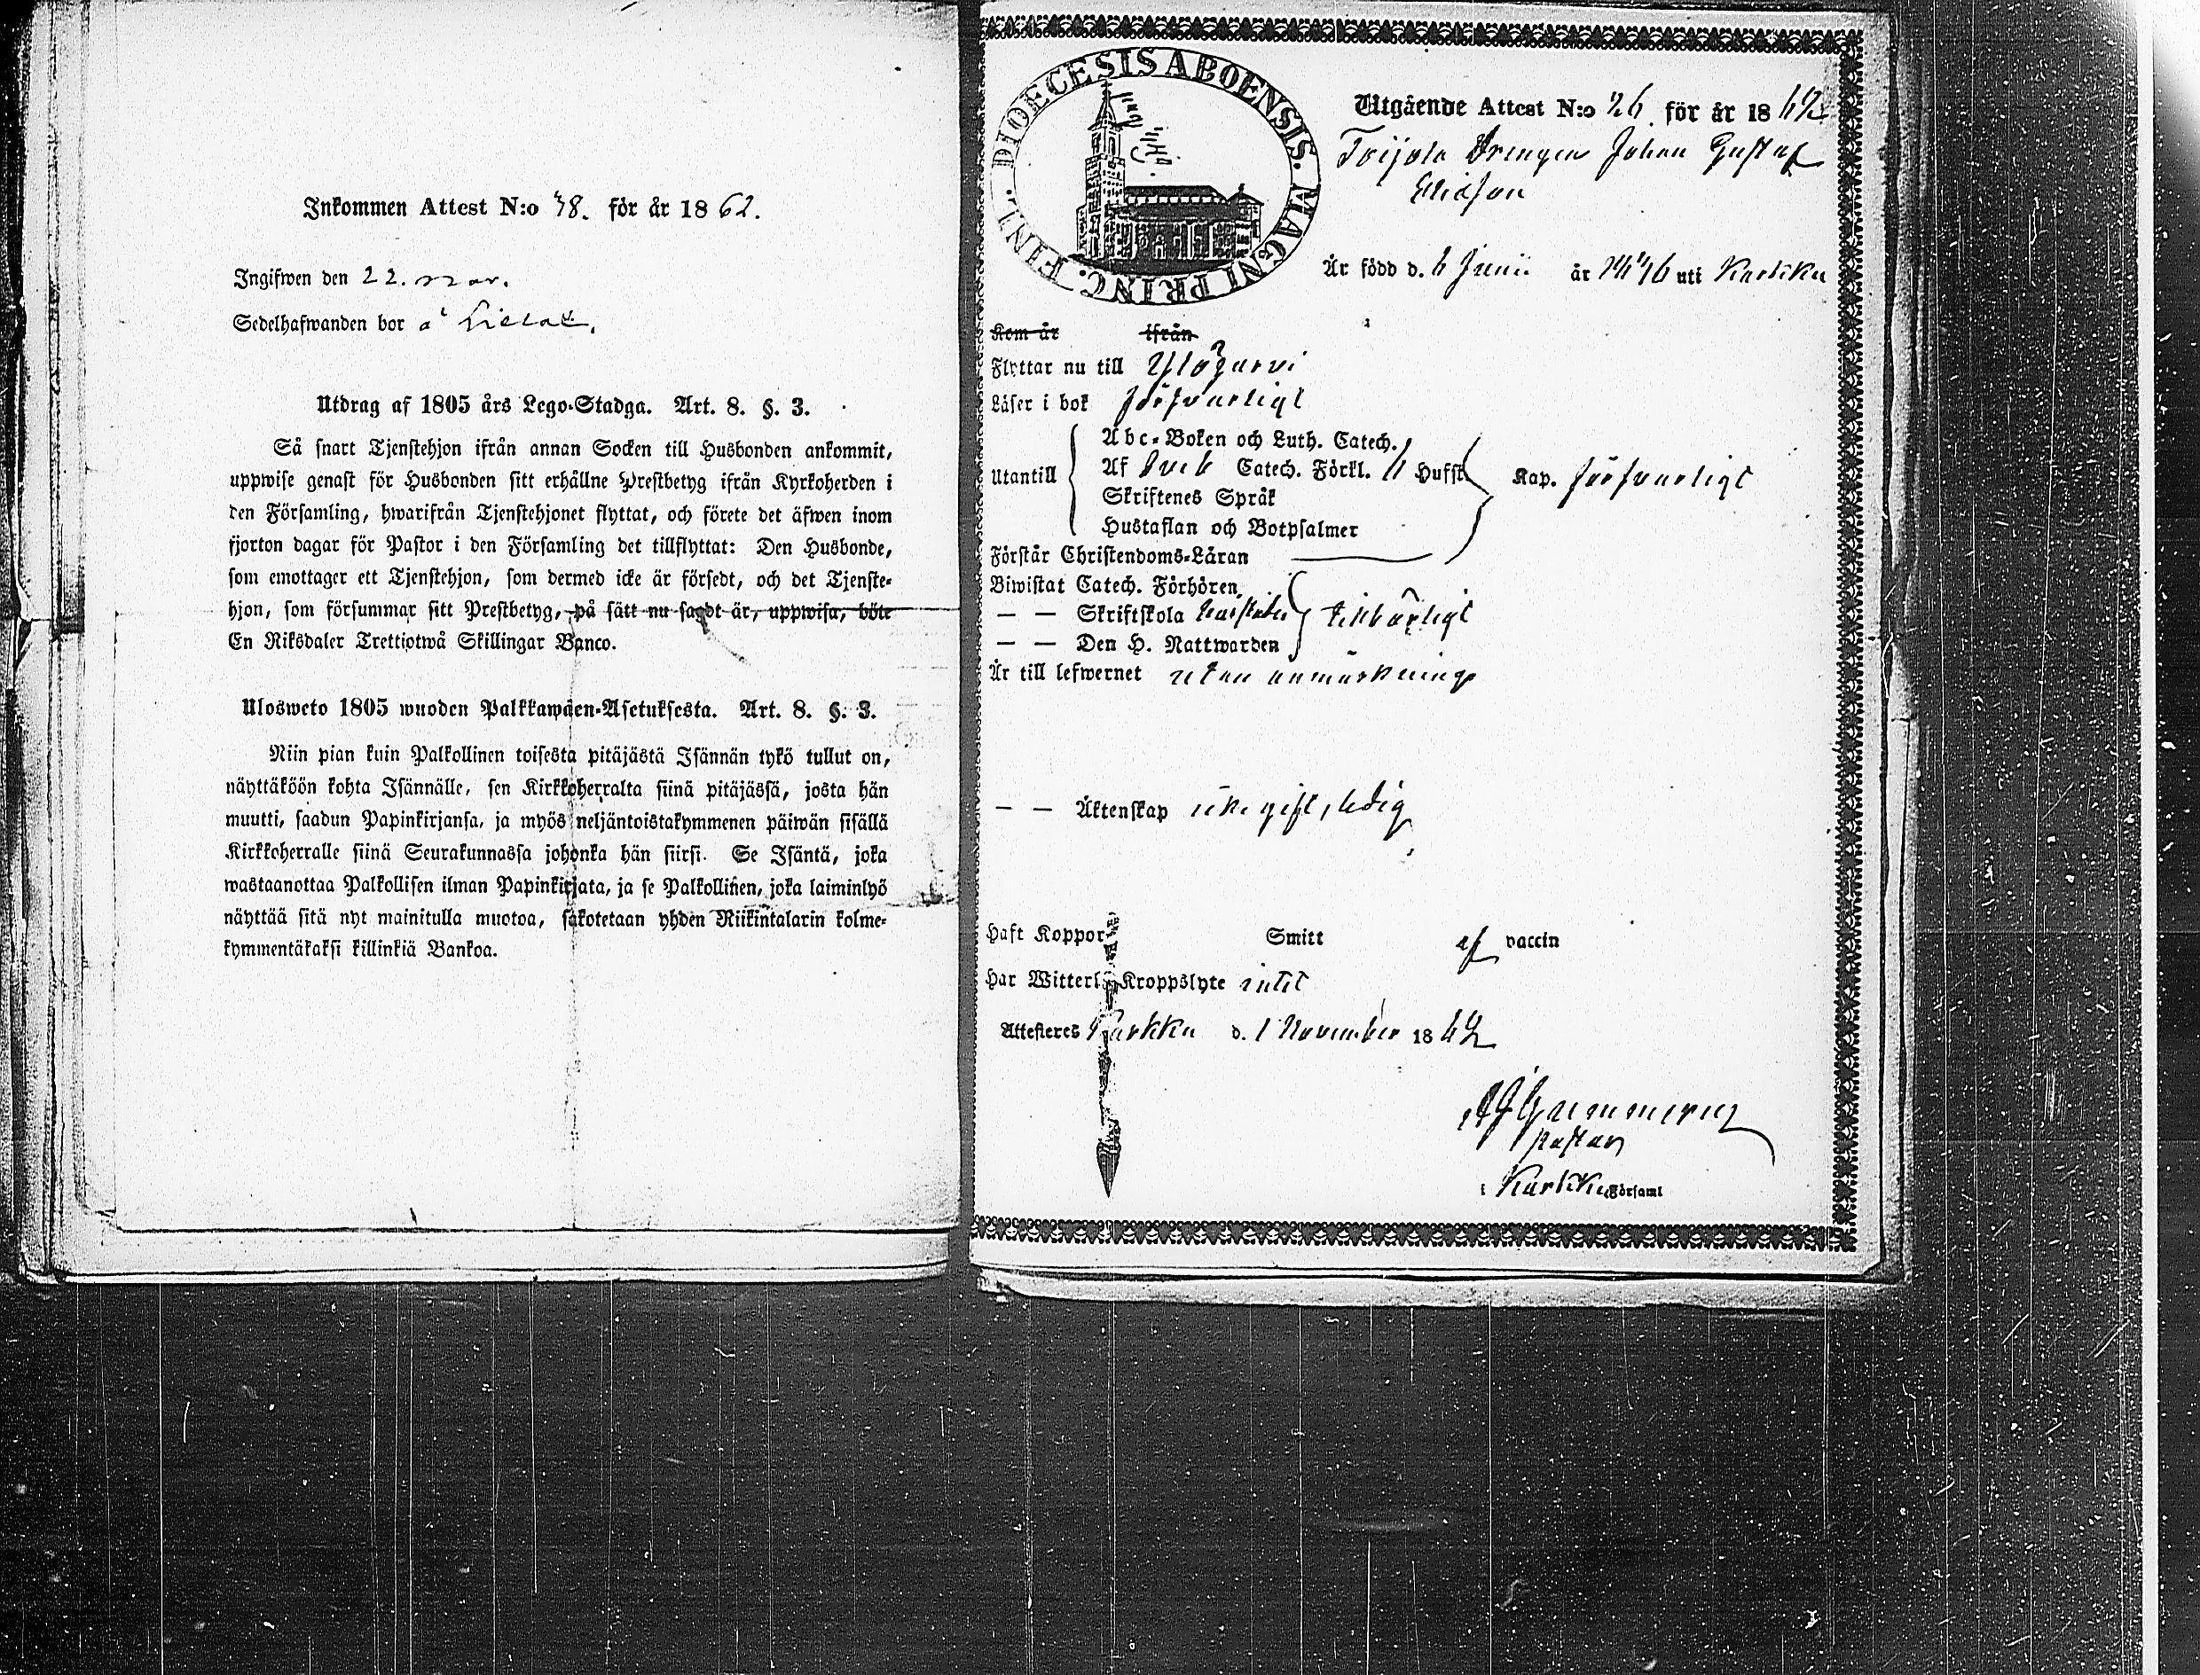 Inkommen Attest N:o 48. för år 1862.
Ingifwen den 22. nov.
Sedelhafwanden bor å
Utdrag af 1805 års Lego-Stadga. Art. 8. §. 3.
Så snart Tjenstehjon ifrån annan Socken till Husbonden ankommit,
uppwise genast för Husbonden sitt erhållne Prestbetyg ifrån Kyrkoherden i
den Församling, hwarifrån Tjenstehjonet flyttat, och förete det äfwen inom
fjorton dagar för Pastor i den Församling det tillflyttat: Den Husbonde,
som emottager ett Tjenstehjon, som dermed icke är försedt, och det Tjenste-
hjon, som försummar sitt Prestbetyg, på sätt nu sagdt är, uppwisa, böte
En Riksdaler Trettiotwå Skillingar Banco.
Ulosweto 1805 wuoden Palkkawäen-Asetuksesta. Art. 8. §. 3.
Niin pian kuin Palkollinen toisesta pitäjästä Isännän tykö tullut on,
näyttäköön kohta Isännälle, sen Kirkkoherralta siinä pitäjässä, josta hän
muutti, saadun Papinkirjansa, ja myös neljäntoistakymmenen päiwän sisällä
Kirkkoherralle siinä Seurakunnassa johonka hän siirsi. Se Isäntä, joka
wastaanottaa Palkollisen ilman Papinkirjata, ja se Palkollinen, joka laiminlyö
näyttää sitä nyt mainitulla muotoa, sakotetaan yhden Riikintalarin kolme-
kymmentäkaksi killinkiä Bankoa.
DIOECESIS ABOENSIS. MAGNI PRINC. FINL.
Utgående Attest N:o 26 för år 1862
Toijola Drengen Johan Gustaf
Eliasson
Är född d. 6 Junii år 1846 uti Karkku
Kom år ifrån
Flyttar nu till Ylöjärvi
Läser i bok försvarligt
Utantill
Abc-Boken och Luth. Catech.
Af Sveb Catech. Förkl. Hufst. Kap. försvarligt
Skriftenes Språk
Hustaflan och Botpsalmer
Förstår Christendoms-Läran
Biwistat Catech. Förhören
— — Skriftskola tillbörligt
— — Den H. Nattwarden
Är till lefwernet utan anmärkning
— — Äktenskap icke gift, ledig
Haft Koppor Smitt af vaccin
Har Witterl. Kroppslyte intet
Attesteres Karkku d. 1 November 1862
Pastor
i Karkku Församl